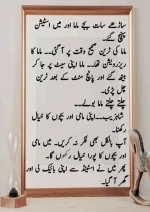 ساڑھے سات بجے ماما اور میں اسٹیشن
پہنچ گئے۔
ماما کی ٹرین صحیح وقت پر آ گئی۔۔ ماما کا
ریزرویشن تھا۔۔ ماما اپنی سیٹ پر جا کر
بیٹھ گئے اور پانچ منٹ کے بعد ٹرین
چل پڑی۔
چلتے چلتے ماما بولے۔۔
شاہزیب۔۔ اپنی مامی اور بچوں کا خیال
رکھنا۔
آپ بالکل بھی فکر نہ کریں۔ میں مامی
اور بچوں کا پورا خیال رکھوں گا۔
پھر میں نے اسٹینڈ سے اپنی بائیک لی اور
گھر آ گیا۔